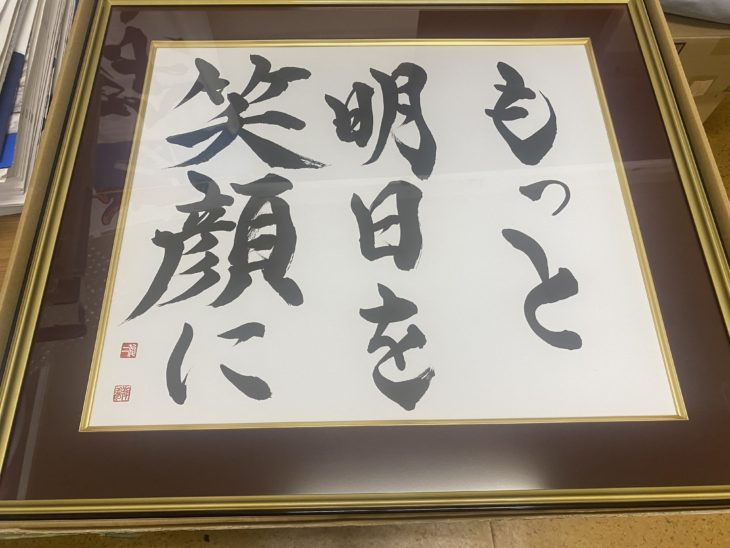 もっと
明日を
笑顔に